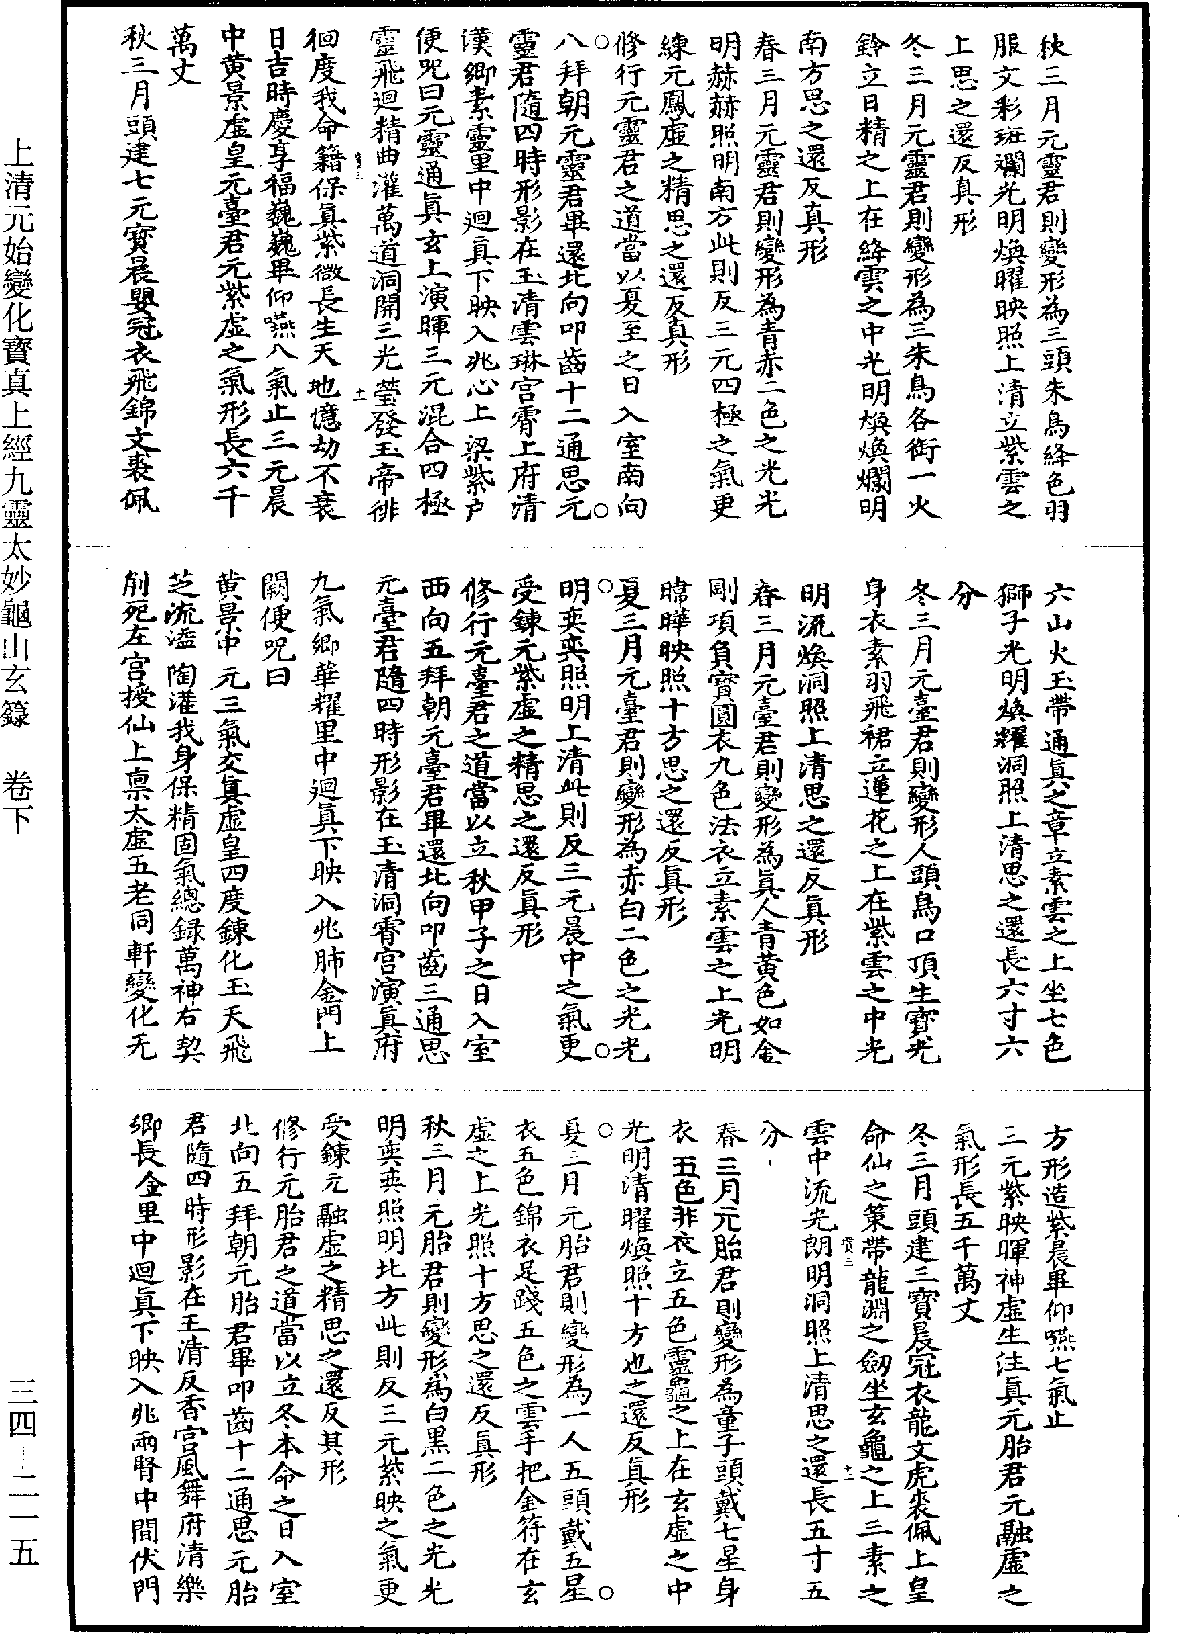 秋三月元靈君則變形為三頭朱鳥絳色羽
服文彩斑斕光明煥曜映照上清立紫雲之
上思之還反真形
冬三月元靈君則變形為三朱鳥各銜一火
鈴立日精之上在絳雲之中光明煥煥爛明
南方思之還反真形
春三月元靈君則變形為青赤二色之光光
明赫赫照明南方此則反三元四極之氣更
練元鳳虛之精思之還反真形
修行元靈君之道當以夏至之日入室南向
八拜朝元靈君畢還北向叩齒十二通思元
靈君隨四時形影在玉清雲琳宮霄上府清
漢鄉素靈里中迴真下映入兆心上梁紫户
便咒曰元靈通真玄上演暉三元混合四極
靈飛迴精曲灌萬道洞開三光瑩發玉帝徘
徊度我命籍保真紫微長生天地憶劫不衰
日吉時慶享福巍巍畢仰嚥八氣止三元晨
中黃景虛皇元臺君元紫虛之氣形長六千
萬丈
秋三月頭建七元寶晨嬰冠衣飛錦文裘佩
六山火玉帶通真之章立素雲之上坐七色
獅子光明煥耀洞照上清思之還長六寸六
分
冬三月元臺君則變形人頭鳥口頂生寶光
身衣素羽飛裙立蓮花之上在紫雲之中光
明流煥洞照上清思之還反真形
春三月元臺君則變形為真人青黃色如金
剛項負寶圓衣九色法衣立素雲之上光明
暐曄映照十方思之還反真形
夏三月元臺君則變形為赤白二色之光光
明奕奕照明上清此則反三元晨中之氣更
受鍊元紫虛之精思之還反真形
修行元臺君之道當以立秋甲子之日入室
西向五拜朝元臺君畢還北向叩齒三通思
元臺君隨四時形影在玉清洞霄宮演真府
九氣鄉華耀里中迴真下映入兆肺金門上
闕便咒曰
黃景中元三氣交真虛皇四度鍊化玉天飛
芝流溢陶灌我身保精固氣總錄萬神右契
削死左宮授仙上稟太虛五老同軒變化无
方形造紫晨畢仰嚥七氣止
三元紫映暉神虛生注真元胎君元融虛之
氣形長五千萬丈
冬三月頭建三寶晨冠衣龍文虎裘佩上皇
命仙之策帶龍淵之劒坐玄龜之上三素之
雲中流光朗明洞照上清思之還長五寸五
分
春三月元胎君則變形為童子頭戴七星身
衣五色非衣立五色靈龜之上在玄虛之中
光明清曜煥照十方也之還反真形
夏三月元胎君則變形為一人五頭戴五星
衣五色錦衣足踐五色之雲手把金符在玄
虛之上光照十方思之還反真形
秋三月元胎君則變形為白黑二色之光光
明奕奕照明北方此則反三元紫映之氣更
受鍊元融虛之精思之還反其形
修行元胎君之道當以立冬本命之日入室
北向五拜朝元胎君畢叩齒十二通思元胎
君隨四時形影在玉清反香宮風舞府清樂
鄉長金里中迴真下映入兆兩腎中間伏門
上清元始變化寶真上經九靈太妙龜山玄籙 卷下
三四—二一五